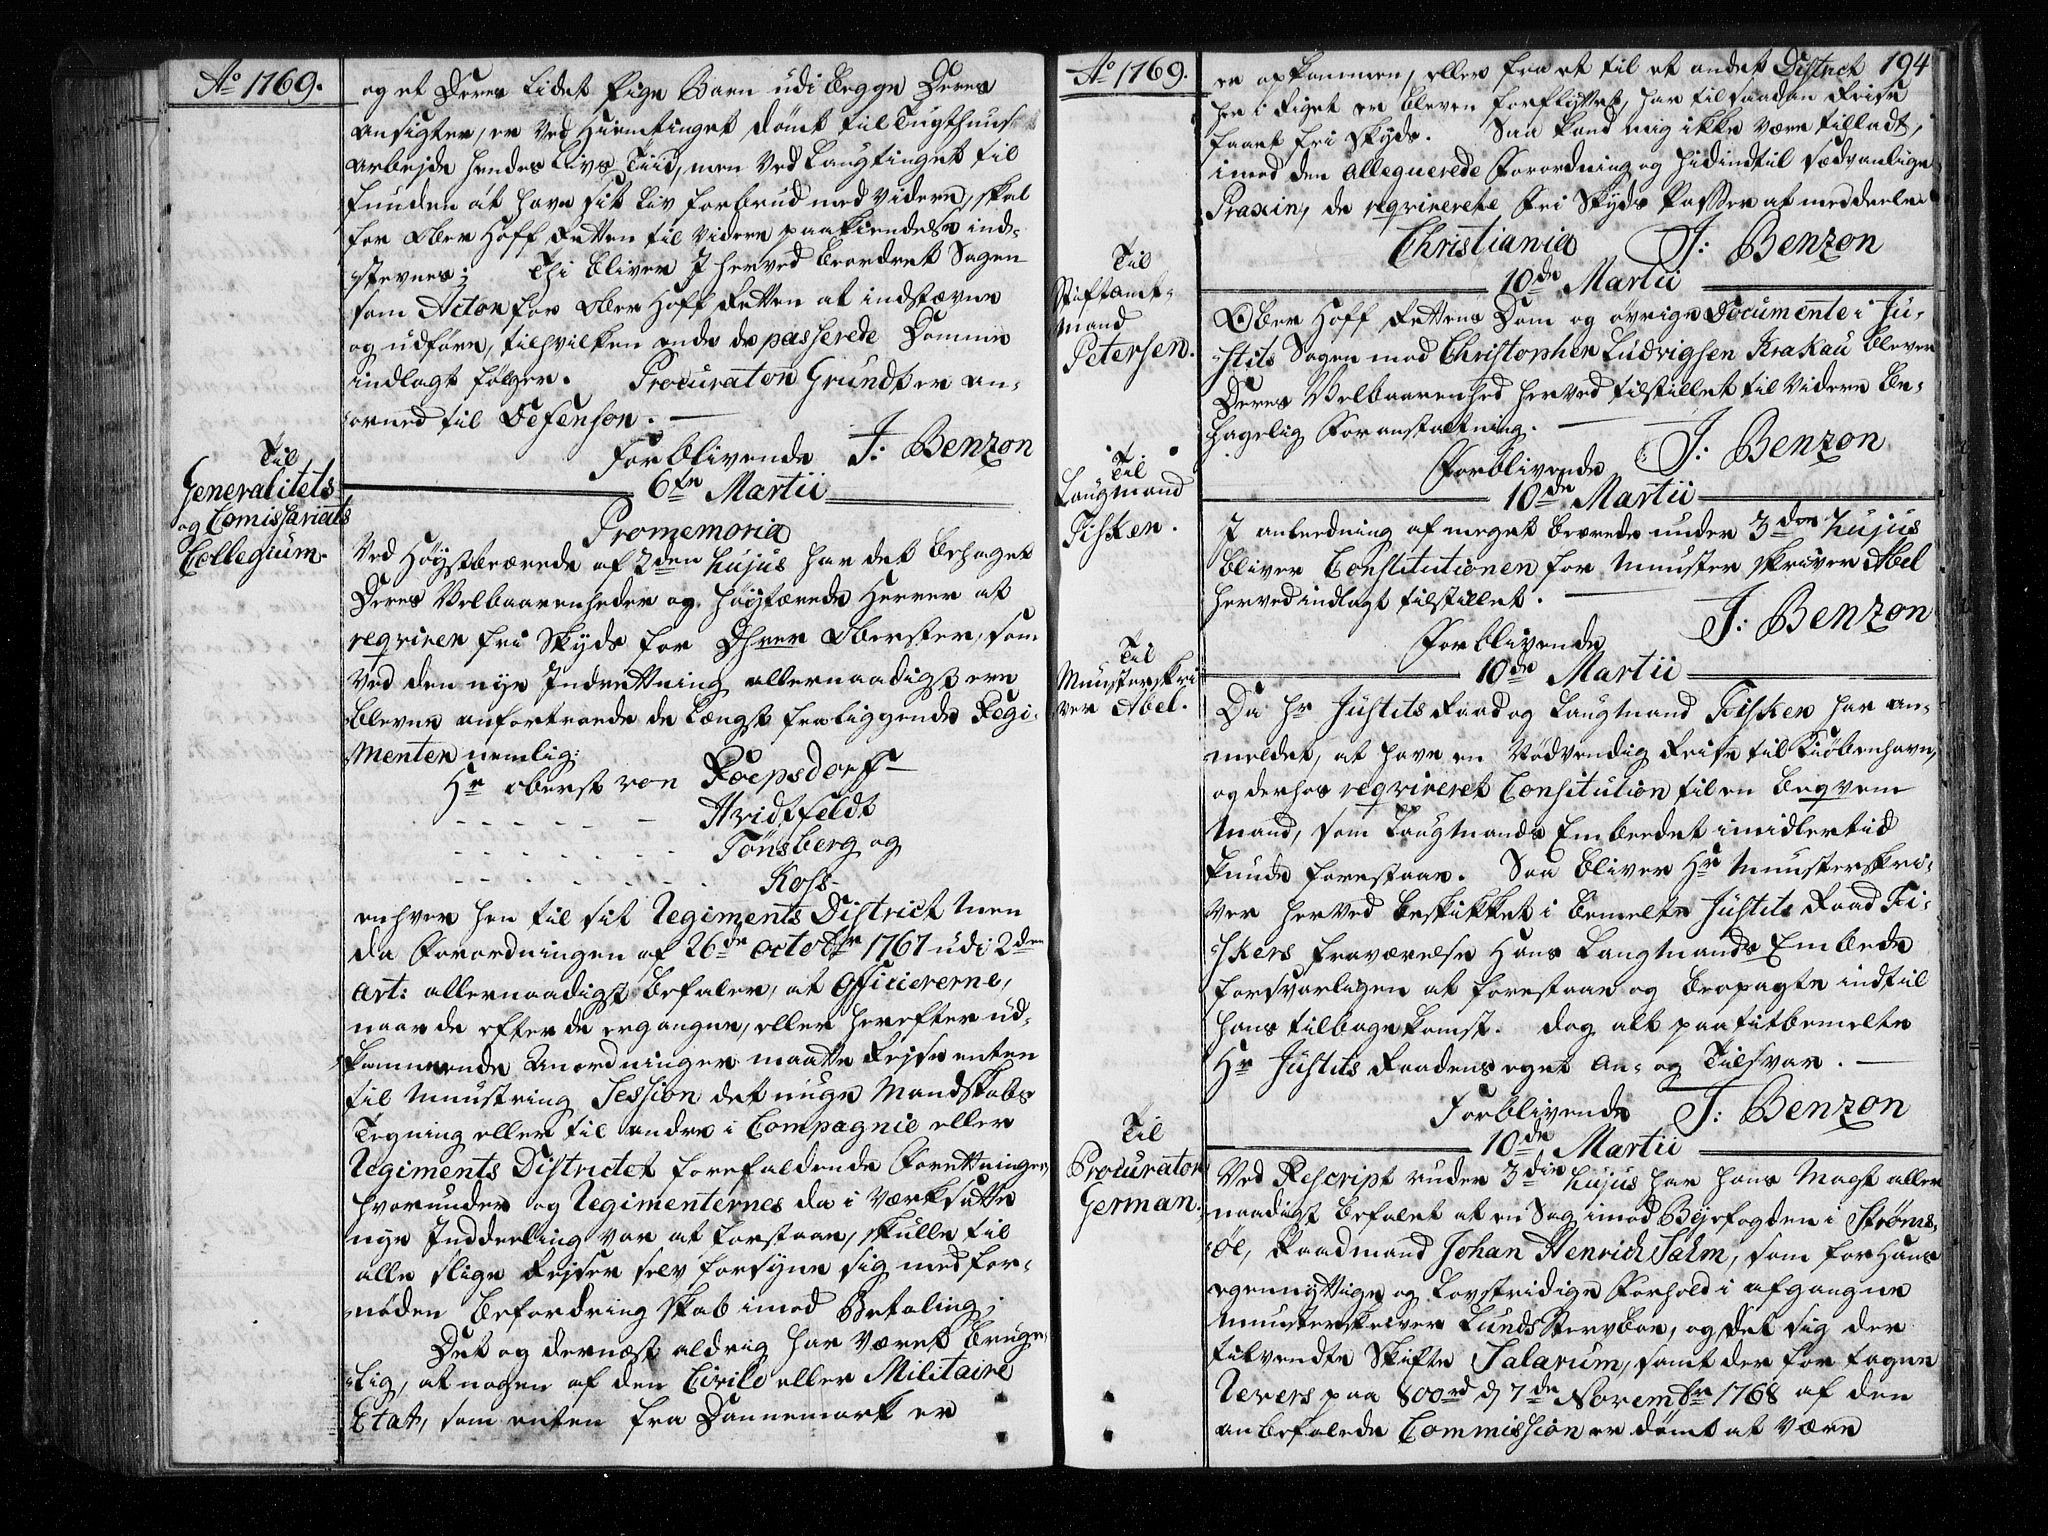 Ao 1769.
og et Deres lidet Pige Barn udi begge Deres
Ansigter, er ved Hiemtinget dömt til Tugthuus
Arbejde hendes Livs Tiid, men ved Laugtinget til
funden at have sit Liv forbrud med videre, skal
for Ober Hoff Retten til videre paakiendelse ind-
stevnes; Thi bliver I herved beordret Sagen
som Acton for Ober Hoff Retten at indstævne
og udföre, til hvilken ende de passerede Domme
indlagt fölger. Procurator Grundt er an-
ordned til Defensor.
Forblivende J: Benzon
6te Martii
Til
Generalitets
og Comissariats
Collegium.
Promemoria
Ved Höystbeærede af 2den hujus har det behaget
Deres Velbaarenheder og höjtærede Herrer at
reqvirer fri Skyds for Dhrer Oberster, som
ved den nye Indrettning allernaadigst ere
blevne anfortroede de længst fraliggende Regi-
menter nemlig:
Hr Oberst von Roepsdorff
- - - - - - - Hvidtfeldt
- - - - - - - Tönsberg og
- - - - - - - Koss-
enhver hen til sit Regiments District Men
da Forordningen af 26de Octobr 1767 udi 2den
Art: allernaadigst befaler, at Officiererne,
naar de efter de ergangne, eller herefter ud-
kommende Anordninger maatte Rejse enten
til Munstring Session det unge Mandskabs
Tegning eller til andre i Compagnie eller
Regiments Districtet forefaldende Forettninger,
hvorunder og Regimenternes da i værksatte
nye Inddeeling var at forstaae, skulle til
alle slige Rejser selv forsyne sig med for-
nöden befordringskab imod Betaling;
Det og dernæst aldrig har været bruge-
lig, at nogen af den Civile eller Militaire
Etat, som enten fra Dannemark er
Ao 1769.
194
er opkommen, eller fra et til et andet District
her i Riget er bleven forflyttet, har til saadan Reise
faaet fri Skyds. Saa kand mig ikke være tilladt,
imod den allequerede Forordning og hidindtil sædvanlige
Praxin, de reqvirerede Fri Skyds Passer at meddeele
Christiania J: Benzon
10de Martii
Til
Stiftamt-
mand
Petersen.
Ober Hoff Rettens Dom og övrige Documente i Ju-
stits Sagen mod Christopher Ludvigsen Krakau bliver
Deres Velbaarenhed herved tilstillet til videre be-
hagelig Foranstaltning.
Forblivende J: Benzon
10de Martii
Til
Laugmand
Fisker.
I anledning af meget beærede under 3den hujus
bliver Constitutionen for Munster skriver Abel
herved indlagt tilstillet.
Forblivende J: Benzon
10de Martii
Til
Munsterskri
ver Abel.
Da Hr Justits Raad og Laugmand Fisker har an-
meldet, at have en Nödvendig Reise til Kiöbenhavn,
og derhos reqvireret Consitution til en beqvem
Mand, som Laugmands Embedet imidlertid
kunde forestaae. Saa bliver Hr Munsterskri-
ver herved beskikket i bemelte Justits Raad Fi-
skers fraværelse Hans Laugmands Embede
forsvarligen at forestaae og beopagte indtil
hans tilbagekomst. dog alt paa titbemelte
Hr Justits Raadens eget An- og Tilsvar.
Forblivende J: Benzon
10de Martii
Til
Procurator
German.
Ved Rescript under 3die hujus har hans Mayt aller
naadigst befalet at en Sag imod Byefogden i Ströms-
öe, Raadmand Johan Henrich Salm, som for Hans
egennyttige og Lovstridige Forhold i afgangne
Munsterskriver Lunds Stervboe, og det sig der
tilvendte Skifte Salarum, samt der for tagne
Revers paa 800rd d 7de Novembr 1768 af den
anbefalede Commission er dömt at være